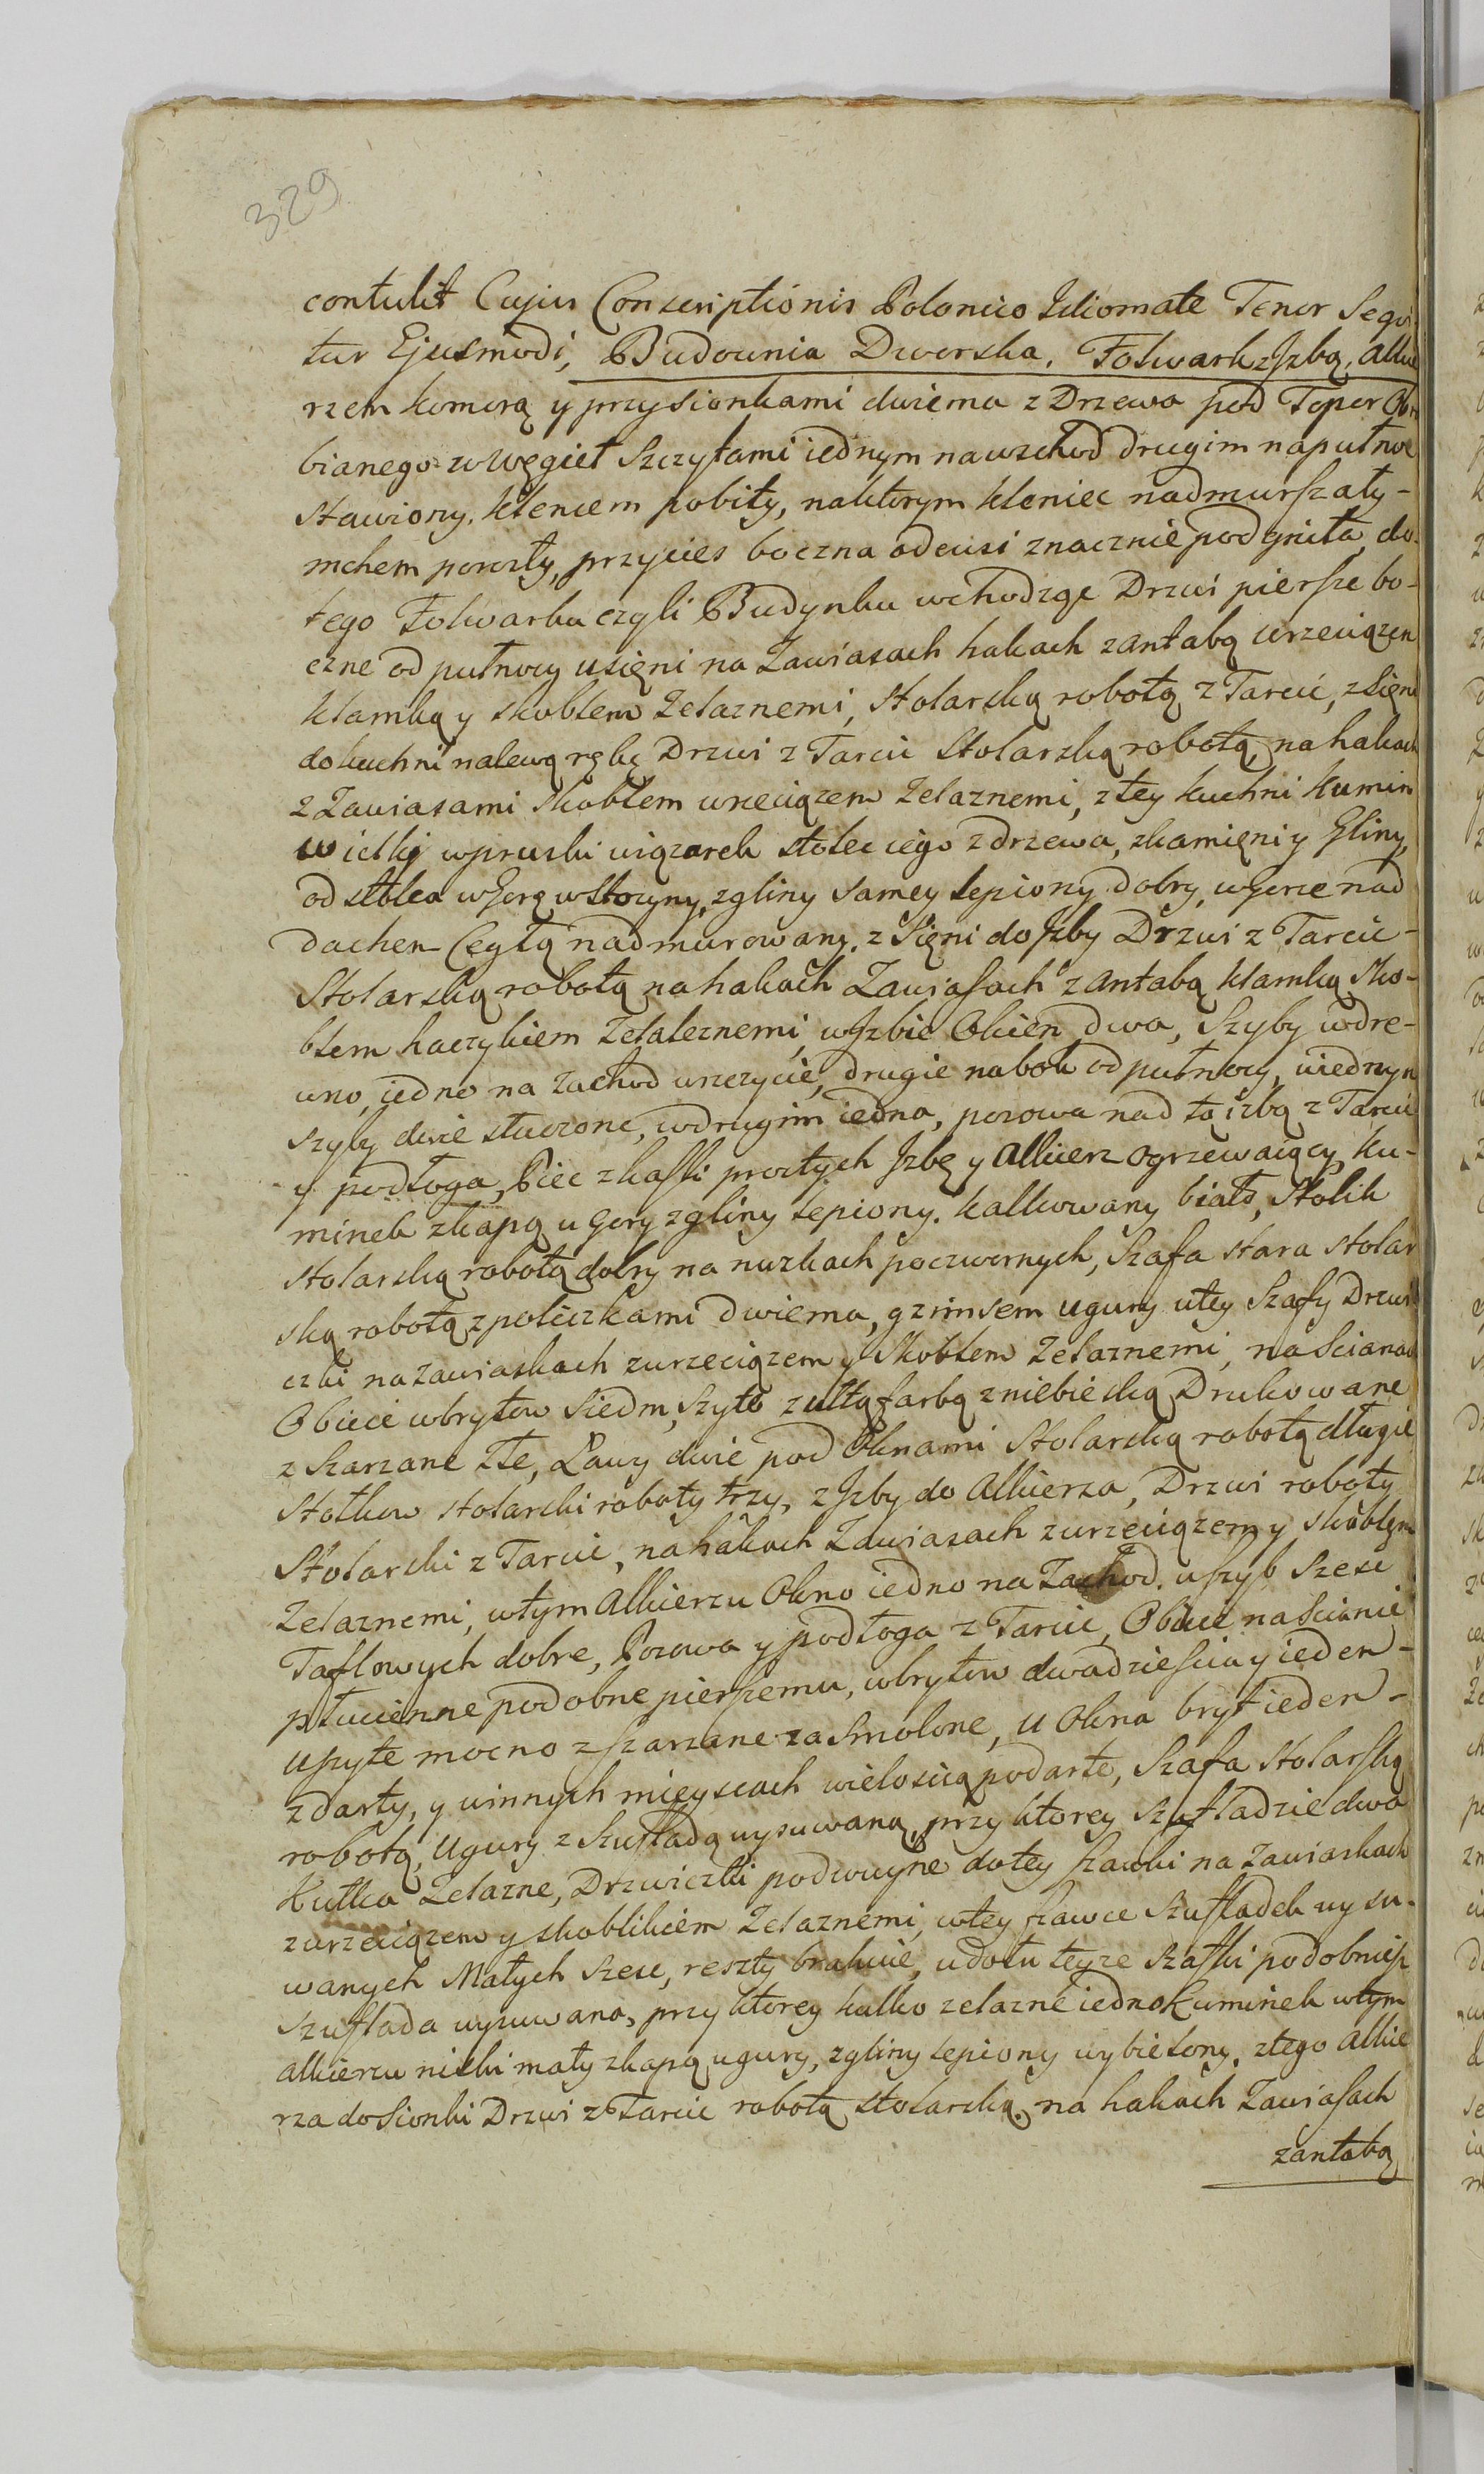 329
contulit Cujus Conscriptionis Polonico Idiomate Tenor Sequi
tur Ejusmodi, Budownia Dworska. Folwark z Jzbą, alkie
rzem komorą y przysionkami dwiema z Drzewa pod Topor Obro
bianego w Węgieł Szczytami iednym nawschod drugim napułnoc
stawiony. kleńcem pobity, naktorym kleniec nadmurszały -
mchem porosły, przycies boczna odewsi znacznie podgniła, do
tego Folwarku czyli Budynku wchodzqc Drzwi piersze bo-
czne od pułnocy usięni na Zawiasach hakach zantabą wrzeciązem
klamką y skoblem Zelaznemi, stolarską robotą z Tarcic, z sięni
dokuchni nalewą rękę Drzwi z Tarcic Stolarską robotą, na hakach
z Zawiasami skoblem wrzeciązem Zelaznemi, z tey kuchni kumin
wielki wpruski wiązarek stolec iego zdrzewa, zkamięni y Gliny,
od stolca wGorę wstoczyny, zgliny samey lepiony dobry, wGorze nad
dachem Cegłą nadmurowany. z Sięni do Jzby Drzwi z Tarcic -
Stolarską robotą na hakach Zawiasach zantabą klamką Sko-
blem haczykiem Zelaleznemi, wJzbie Okien dwa, Szyby wdre-
wno, iedno na Zachod wszczycie, drugie nabok od pułnocy, wiednym
szyby dwie stłuczone, wdrugim iedna, posowa nad tą izbą z Tarcic
y podłoga, Piec zkafli prostych Jzbę y Alkierz ogrzewaiący, ku-
minek zkapą u gory zgliny lepiony. kalkowany biało, Stolik
stolarską robotą dobry na nuzkach poczwornych, Szafa stara stolar
ską robotą zpoliczkami dwiema, gzimsem ugury utey Szafy Drzwi
czki nazawiaskach zwrzeciązem y Skoblem Zelaznemi, naScianach
Obiecie wbrytow Siedm, Szyte zułtą farbą zniebieską Drukowane
z Szarzane Złe, Ławy dwie pod Oknami Stolarską robotą długie
Stołkow stolarski roboty trzy, z Jzby do Alkierza, Drzwi roboty
Stolarski z Tarcic, na hakach Zawiasach zwrzeciązem y skoblem
Zelaznemi, wtym Alkierzu Okno iedno na Zachod. uszyb Szesc
Taflowych dobre, Posowa y podłoga z Tarcic, Obicie naScianie
płucienne podobne pierszemu, wbrytow dwadziescia y ieden -
uszyte mocno zszarzane zasmolone, u Okna bryt ieden -
zdarty, y winnych mieyscach wieloscią podarte, Szafa stolarską
robotą, Ugury z Szufladą wysuwaną, przy ktorey Szufladzie dwa
Kułka Zelazne, Drzwiczki podwuyne dotey szawki na Zawiaskach
zwrzeciązem y skoblikiem Zelaznemi, wtey szawce Szufladek wysu-
wanych Małych szesc, reszty brakuie, udołu teyze Szafki podobniesz
Szuflada wysuwana, przy ktorey kulko zelazne iedno Kuminek wtym
alkierzu niski mały zkapą ugury, zgliny lepiony wybielony. ztego Alkie
rza doSionki Drzwi z Tarcic robotą stolarską. na hakach Zawiasach
zantabą